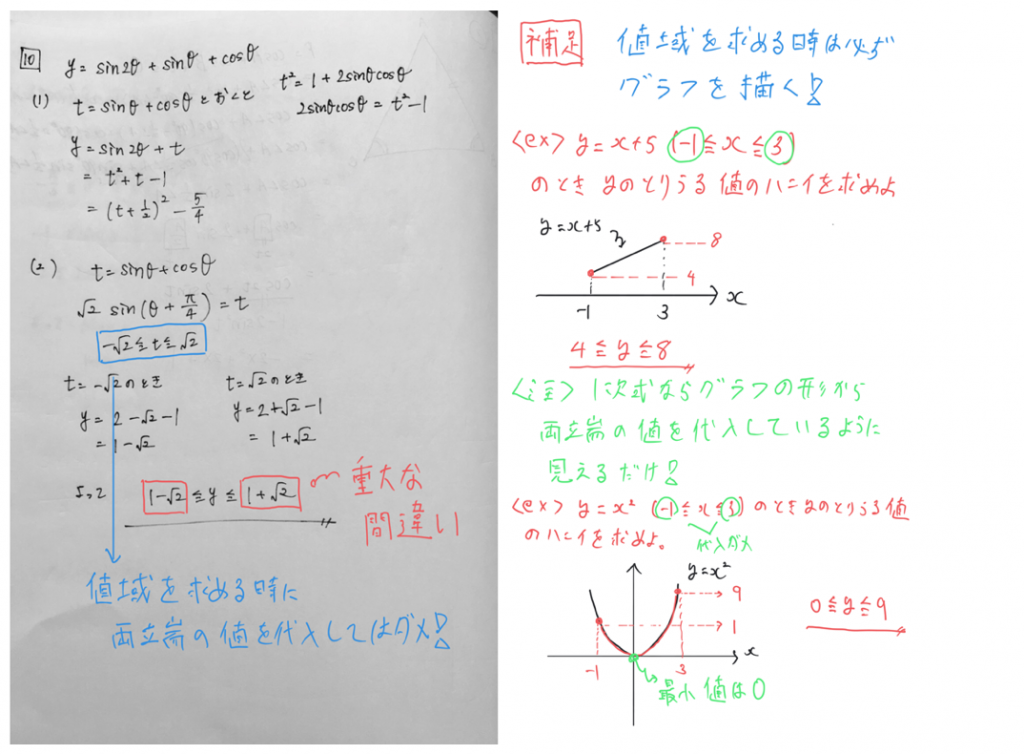 10 y = sin2θ + sinθ + cosθ
(1) t = sinθ + cosθ とおくと t² = 1 + 2sinθcosθ
2sinθcosθ = t² - 1
y = sin2θ + t
= t² + t - 1
= (t + 1/2)² - 5/4
(2) t = sinθ + cosθ
√2 sin(θ + π/4) = t
-√2 ≦ t ≦ √2
t = -√2 のとき t = √2 のとき
y = 2 - √2 - 1 y = 2 + √2 - 1
= 1 - √2 = 1 + √2
よって 1-√2 ≦ y ≦ 1+√2
重大な
間違い
値域を求める時に
両端の値を代入してはダメ!
補足 値域を求める時は必ず
グラフを描く!
<ex> y = x+5 (-1 ≦ x ≦ 3)
のとき yのとりうる値のハニイを求めよ
y = x+5
8
4
-1 3 x
4 ≦ y ≦ 8
<注> 1次式ならグラフの形から
両端の値を代入しているように
見えるだけ!
<ex> y = x² (-1 ≦ x ≦ 3) のとき yのとりうる値
のハニイを求めよ。 代入ダメ
y = x²
9
1
-1 3 x
最小値は0
0 ≦ y ≦ 9